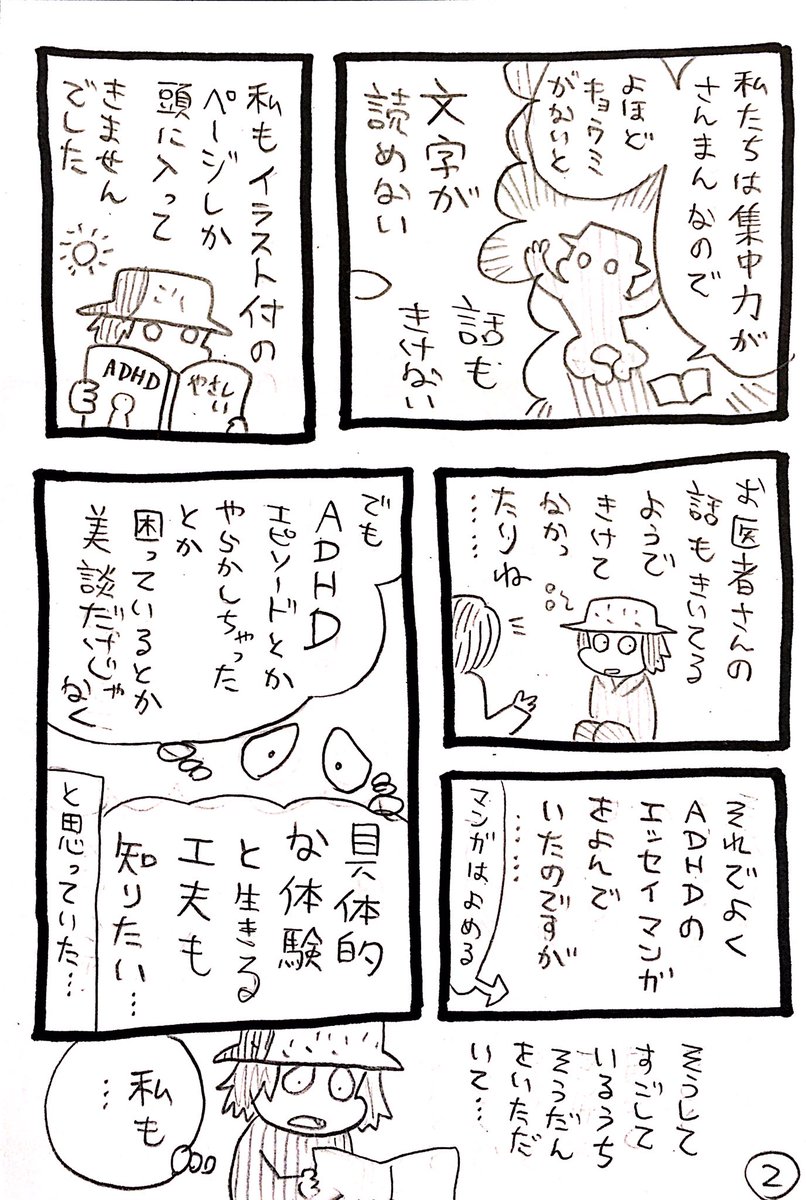 私たちは集中力が
さんまんなので
よほど
キョウミ
がないと
文字が
読めない
話も
きけない
私もイラスト付の
ページしか
頭に入って
きません
でした
ADHD
やさしい
お医者さんの
話もきいてる
ようで
きけて
なかっ
たりね
……
それでよく
ADHDの
エッセイマンガ
をよんで
いたのですが
……
マンガはよめる
でも
ADHD
エピソードとか
やらかしちゃった
とか
困っているとか
美談だけじゃ
なく
具体的
な体験
と生きる
工夫も
知りたい…
と思っていた…
そうして
すごして
いるうち
そうだん
をいただ
いて…
私も
…
2